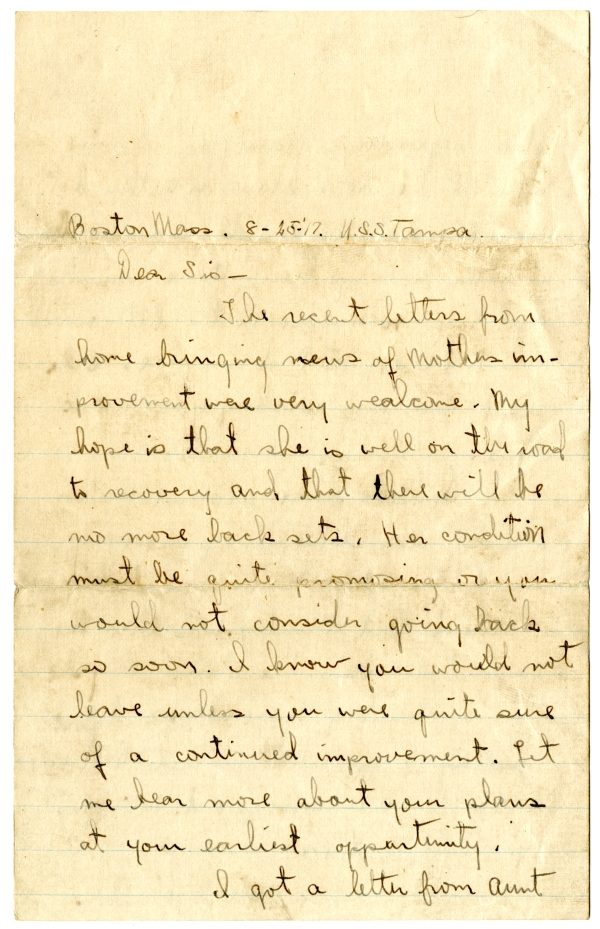 Boston Mass. 8-25-'17. U.S.S. Tampa.
Dear Sis—
The recent letters from
home bringing news of Mothers im-
provement were very wealcome. My
hope is that she is well on the road
to recovery and that there will be
no more back sets. Her condition
must be quite promising or you
would not consider going back
so soon. I know you would not
leave unless you were quite sure
of a continued improvement. Let
me hear more about your plans
at your earliest opportunity.
I got a letter from Aunt